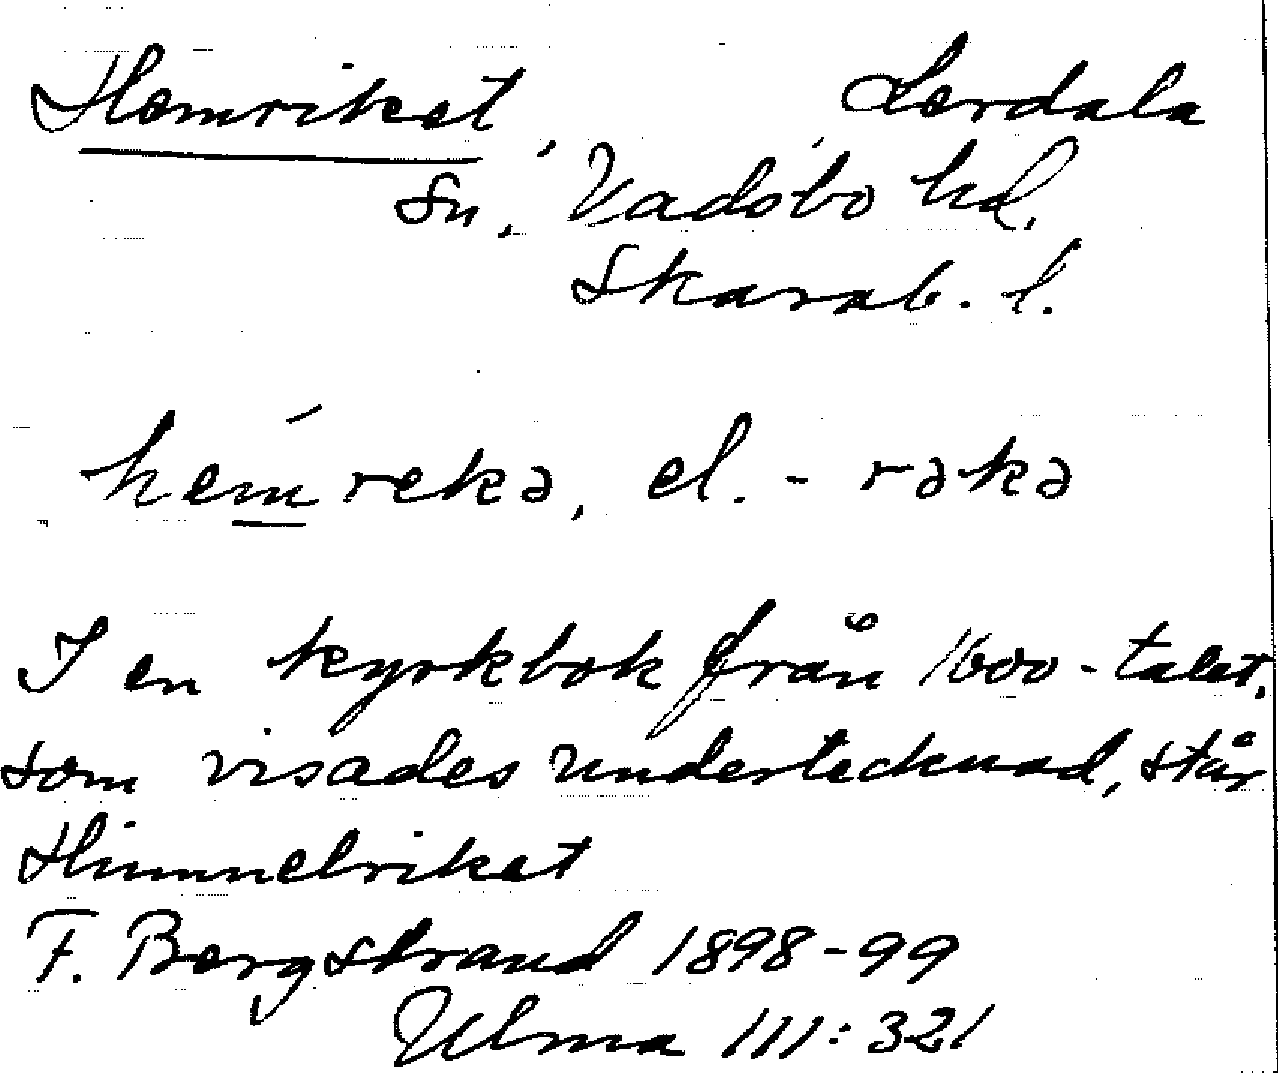 Hemriket, Lerdala
Sn., Vadsbo hd.
Skarab. l.
hemrekə, el. - rəkə
I en kyrkbok från 1600-talet,
som visades undertecknad, står
Himmelriket
F. Bergstrand 1898-99
Ulma 111:321